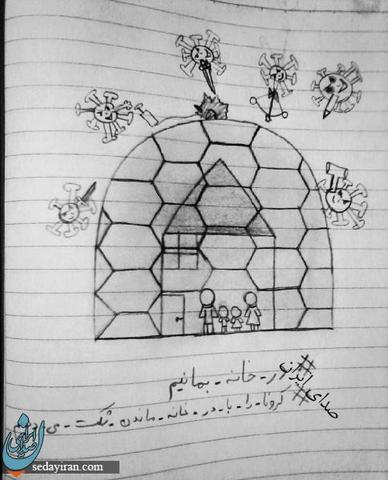 #در-خانه-بمانیم
#کرونا-را-با-در-خانه-ماندن-شکست-می
صدای ایران
sedayiran.com